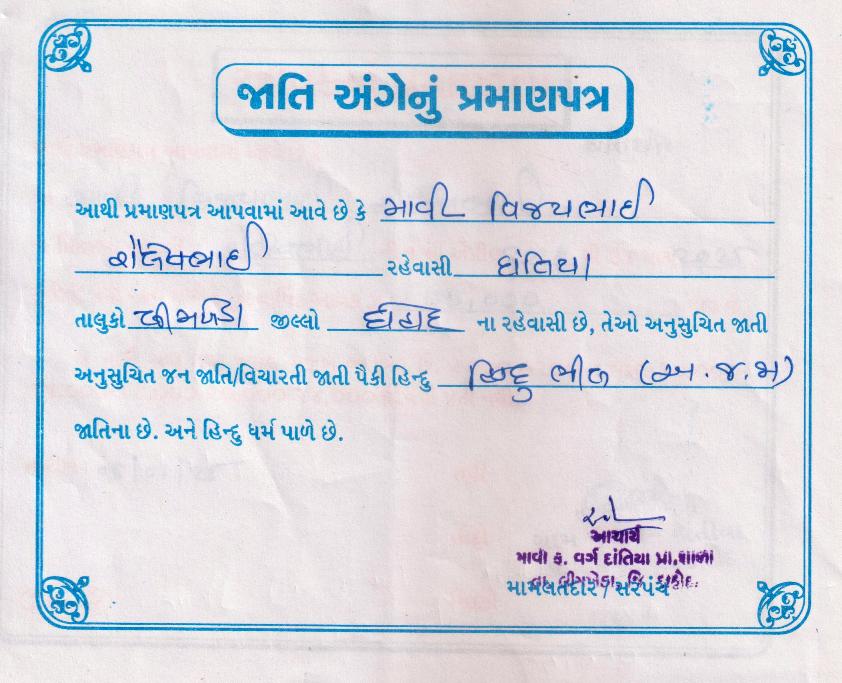 જાતિ અંગેનું પ્રમાણપત્ર
આથી પ્રમાણપત્ર આપવામાં આવે છે કે માવી વિજયભાઈ
રહેવાસી દાંતિયા
તાલુકો લીમખેડા જીલ્લો દાહોદ ના રહેવાસી છે, તેઓ અનુસુચિત જાતી
અનુસુચિત જન જાતિ/વિચારતી જાતી પૈકી હિન્દુ હિન્દુ ભીલ (અ.જ.જા)
જાતિના છે. અને હિન્દુ ધર્મ પાળે છે.
આચાર્ય
માવી ફ. વર્ગ દાંતિયા પ્રા.શાળા
તા. લીમખેડા, જિ. દાહોદ
મામલતદાર / સરપંચ